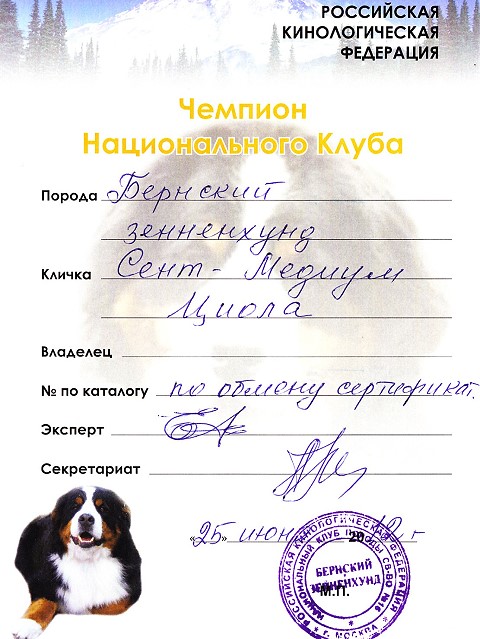 РОССИЙСКАЯ
КИНОЛОГИЧЕСКАЯ
ФЕДЕРАЦИЯ
Чемпион
Национального Клуба
Порода Бернский
зенненхунд
Кличка Сент-Медиум
Циола
Владелец
№ по каталогу по обмену сертификат.
Эксперт
Секретариат
«25» 20 г
РОССИЙСКАЯ КИНОЛОГИЧЕСКАЯ ФЕДЕРАЦИЯ
НАЦИОНАЛЬНЫЙ КЛУБ ПОРОДЫ СВ-ВО
БЕРНСКИЙ
ЗЕННЕНХУНД
М.П.
* Г. МОСКВА *